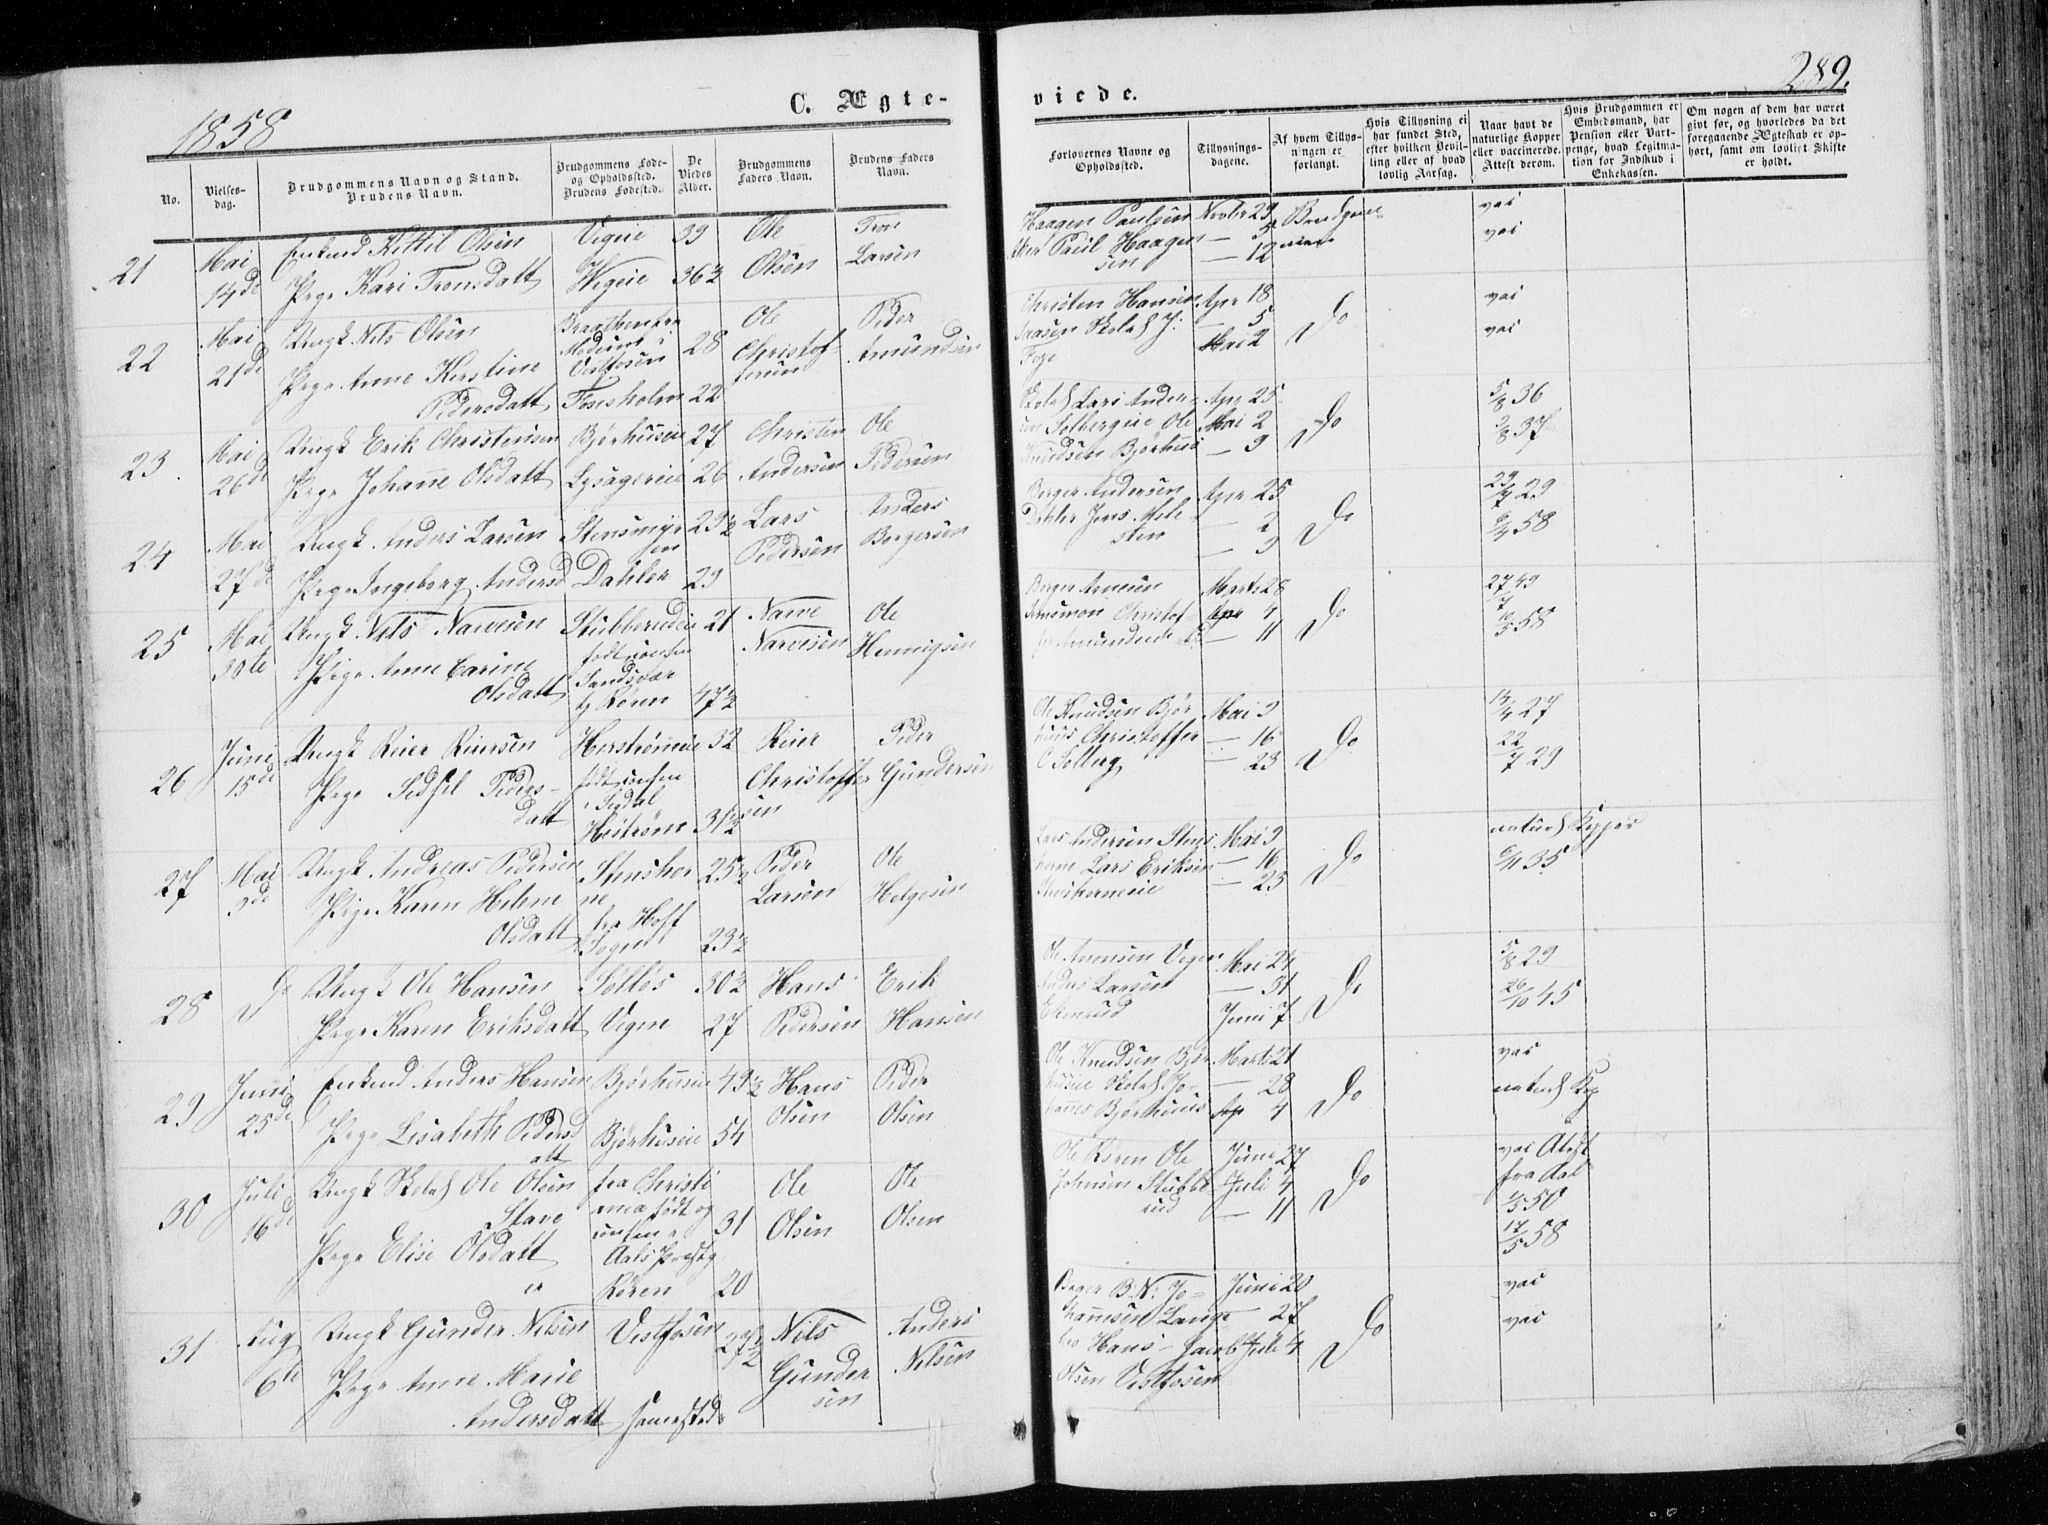 1858
C. Ægte-
No.
Vielses-
dag.
Brudgommens Navn og Stand.
Brudens Navn.
Brudgommens Føde-
og Opholdssted.
Brudens Fødested.
De
Viedes
Alder.
Brudgommens
Faders Navn.
Brudens Faders
Navn.
21
Mai
14de
Enkemd Kittil Olsen
Pige Kari Tronsdatt
Vegeie
Vegeie
39
36½
Ole
Olsen
Tron
Larsen
22
Mai
21de
Ungk Nils Olsen
Pige Anne Kirstine
Pedersdatt
Braathen fra
Modum i
Vestfosen
Fossesholm
28
22
Ole
Christof-
fersen
Peder
Amundsen
23
Mai
26de
Ungk Erik Christensen
Pige Johanne Olsdatt
Bjørhuseie
Lysagereie
27
26
Christen
Andersen
Ole
Pedersen
24
Mai
27de
Ungk Anders Larsen
Pige Ingeborg Andersd
Stensmyr
en
Dahler
23½
29
Lars
Pedersen
Anders
Borgersen
25
Mai
30te
Ungk Nils Narvesen
Pige Anne Carine
Olsdatt
Stubberudeie
født uensen
Sandsvær
Røren
21
47½
Narve
Narvesen
Ole
Hennigsen
26
Juni
15de
Ungk Reier Reiersen
Pige Sidsel Peders-
datt
Herstrømeie
i Sigdal
Hestrøm
32
31½
Reier
Christoffer
sen
Peder
Gundersen
27
Mai
9de
Ungk Andreas Pedersen
Pige Karen Helene
Olsdatt
Stenshor
ne
fra Hoff
Sogn
25½
23½
Peder
Larsen
Ole
Helgesen
28
Do
Ungk Ole Hansen
Pige Karen Eriksdatt
Solløs
Vegne
30½
27
Hans
Pedersen
Erik
Hansen
29
Juni
25de
Enkemd Anders Hansen
Pige Lisabeth Pedersd
att
Bjørhuseie
Bjørhuseie
49½
54
Hans
Olsen
Peder
Olsen
30
Juli
16de
Ungk Skolel Ole Olsen
Stave
Pige Elise Olsdatt
fra Christi
ania født og
Aals Præstg
Røren
31
20
Ole
Olsen
Ole
Olsen
31
Aug
6te
Ungk Gunder Nilsen
Pige Anne Marie
Andersdatt
Vestfosen
sammested
27½
Nils
Gunder
sen
Anders
Nilsen
289.
viede.
Forlovernes Navne og
Opholdssted.
Tillysnings-
dagene.
Af hvem Tillys-
ningen er
forlangt.
Hvis Tillysning ei
har fundet Sted,
efter hvilken Bevil-
ling eller af hvad
lovlig Aarsag.
Naar havt de
naturlige Kopper
eller vaccinerede.
Attest derom.
Hvis Brudgommen er
Embedsmand, har
Pension eller Vart-
penge, hvad Legitma-
tion for Indskud i
Enkekassen.
Om nogen af dem har været
gift før, og hvorledes da det
foregaaende Ægteskab er op-
hørt, samt om lovligt Skifte
er holdt.
Haagen Paulsen
Paul Haagen
sen
— 5
— 12
vac
vac
Christen Hansen
Apr 18
— 5
Mai 2
Do
vac
vac
Lars Ander-
sen Solbergeie Ole
Knudsen Bjørhus
Apr 25
Mai 2
— 9
Do
5/8 36
3/8 37
Borger Andersen
Dahler Jens Mele
sten
Apr 25
— 2
— 9
Do
29
58
Borger Arnesen
Christof
Marts 28
Apr 4
— 11
Do
49
58
Ole Knudsen Bjør
huus Christoffer
O Solberg
Mai 9
— 16
— 23
Do
14/4 27
22/7 29
Lars Andersen Stens
horne Lars Eriksen
Stenshorneeie
Mai 9
— 16
— 23
Do
naturl Kopper
6/11 35
Ole Arnesen Vegne
Anders Larsen
Ekerud
Mai 24
— 31
Juni 7
Do
5/8 29
26/10 45
Ole Knudsen Bjør
huseie Skolel Jo-
hannes Bjørhuus
Marts 21
— 28
Ap 4
Do
vac
naturl Kop
Ole Røren Ole
Johnsen Stubbe
rud
Juni 27
Juli 4
— 11
Do
vac Attest
fra Aal
50
17/5 58
Bager B. N. Jo-
hannesen Lange
Hans Jacob
Olsen Vestfosen
Juni 20
— 27
Juli 4
Do
vac
vac